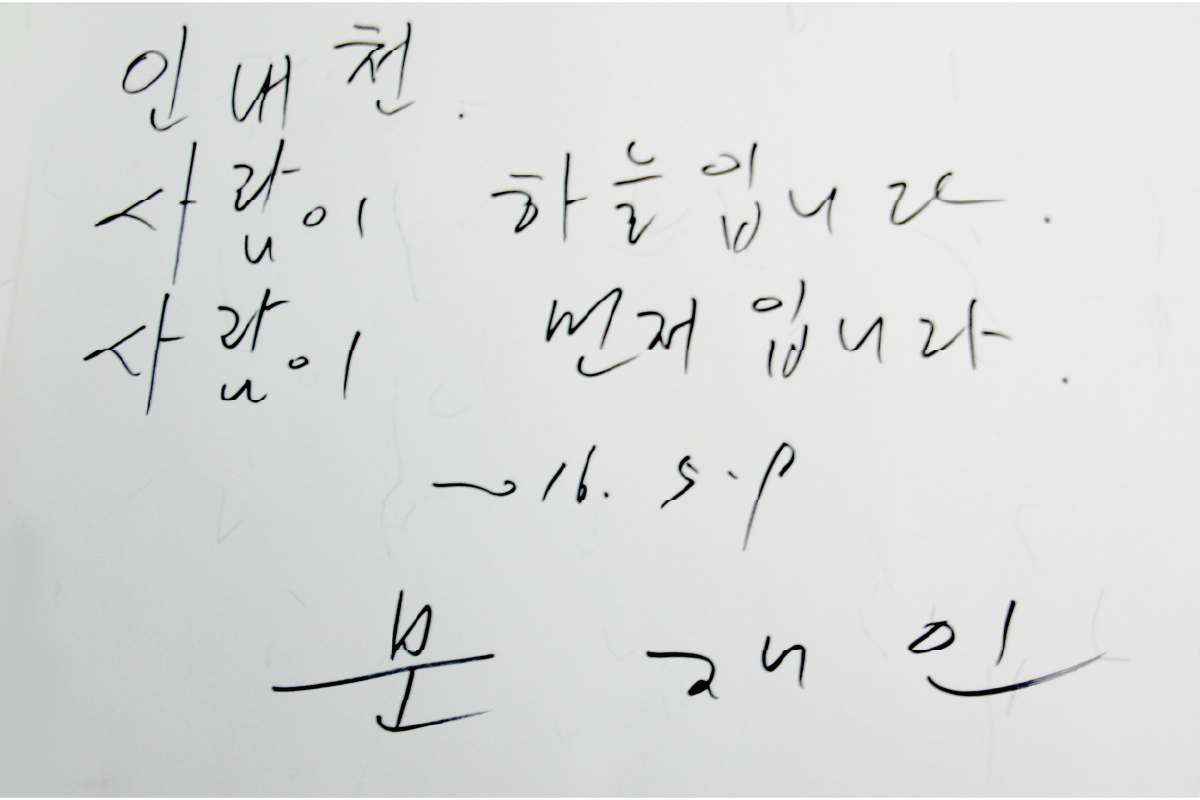 인내천.
사람이 하늘입니다.
사람이 먼저입니다.
~16. 5. 9
문재인